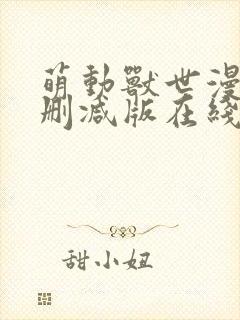 萌動獸世漫
刪减版在綫
甜小妞